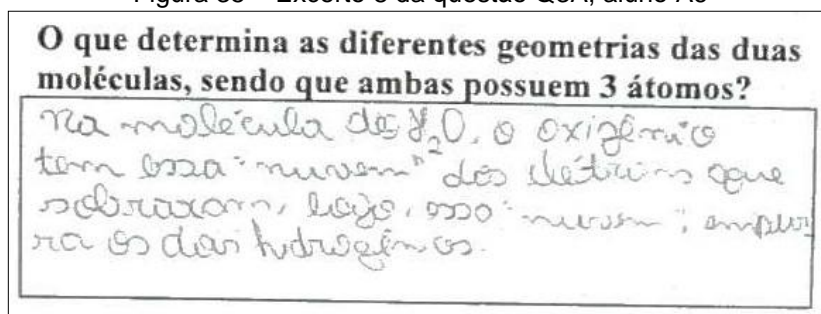 O que determina as diferentes geometrias das duas
moléculas, sendo que ambas possuem 3 átomos?
na molécula de H₂O, o oxigênio
tem essa "nuvem" dos elétrons que
sobraram, logo, essa "nuvem", empur
ra os dois hidrogênios.